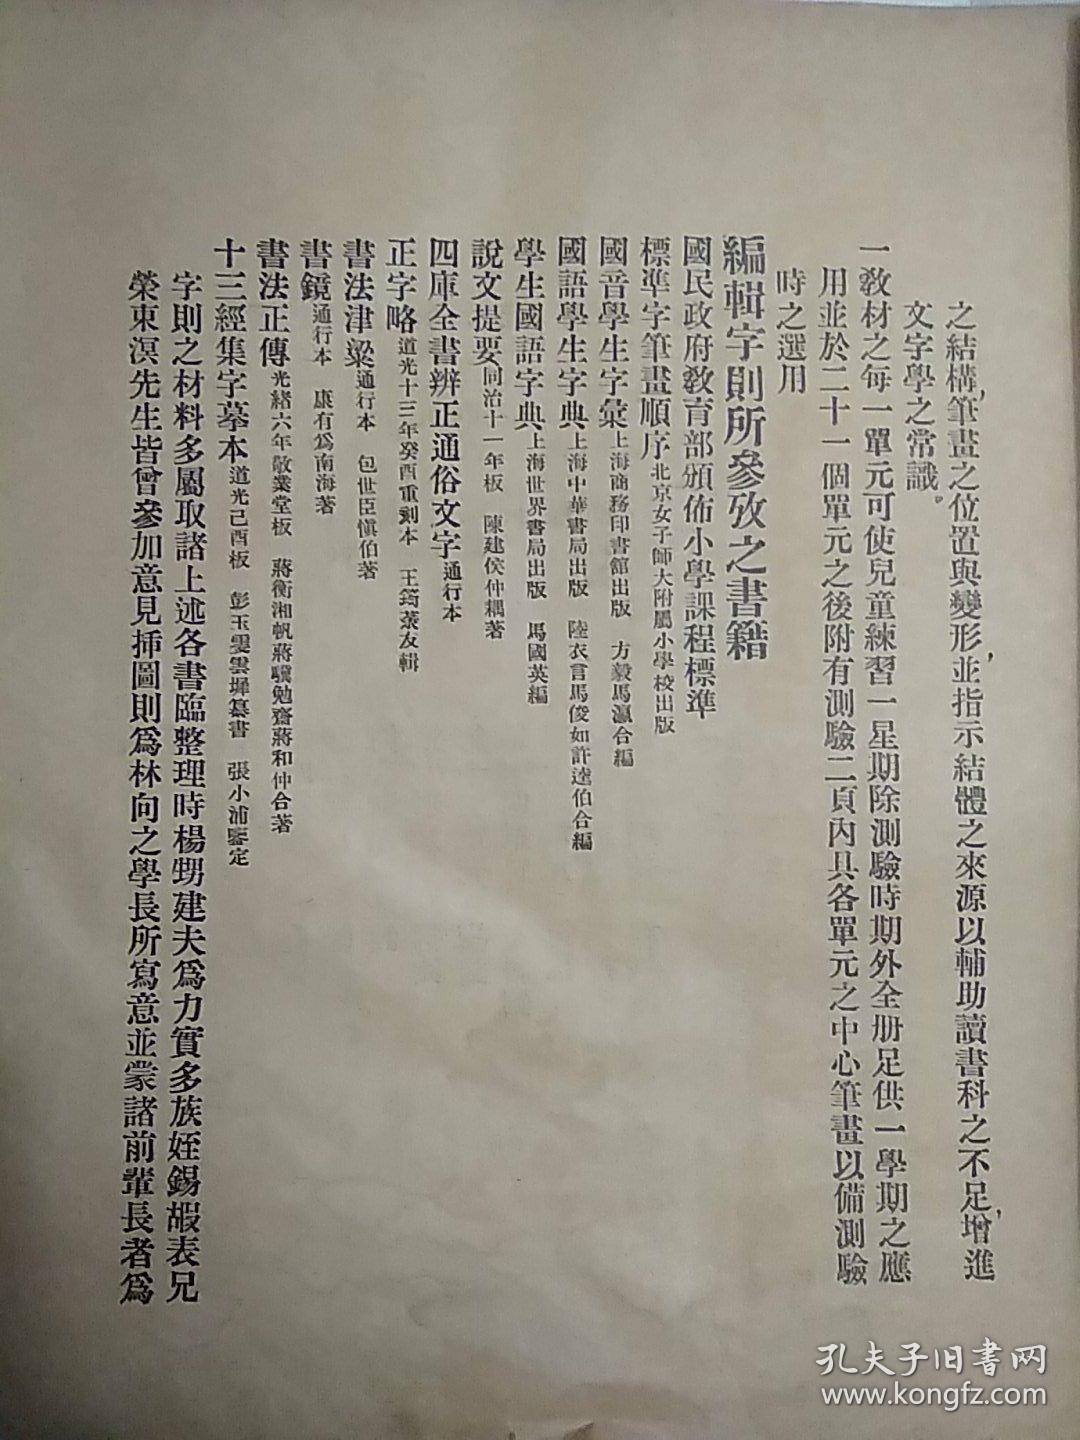 之結構,筆畫之位置與變形,並指示結體之來源以輔助讀書科之不足,增進
文字學之常識。
一教材之每一單元可使兒童練習一星期除測驗時期外全册足供一學期之應
用並於二十一個單元之後附有測驗二頁內具各單元之中心筆畫以備測驗
時之選用
編輯字則所參攷之書籍
國民政府教育部頒佈小學課程標準
標準字筆畫順序 北京女子師大附屬小學校出版
國音學生字彙 上海商務印書館出版 方毅馬瀛合編
國語學生字典 上海中華書局出版 陸衣言馬俊如許達伯合編
學生國語字典 上海世界書局出版 馬國英編
說文提要 同治十一年板 陳建侯仲耦著
四庫全書辨正通俗文字 通行本
正字略 道光十三年癸酉重刻本 王筠菉友輯
書法津梁 通行本 包世臣愼伯著
書鏡 通行本 康有爲南海著
書法正傳 光緒六年敬業堂板 蔣衡湘帆蔣驥勉齋蔣和仲合著
十三經集字摹本 道光己酉板 彭玉雯雲墀纂書 張小浦鑒定
字則之材料多屬取諸上述各書臨整理時楊甥建夫爲力實多族姪錫嘏表兄
榮東溟先生皆曾參加意見揷圖則爲林向之學長所寫意並蒙諸前輩長者爲
孔夫子旧書网
www.kongfz.com